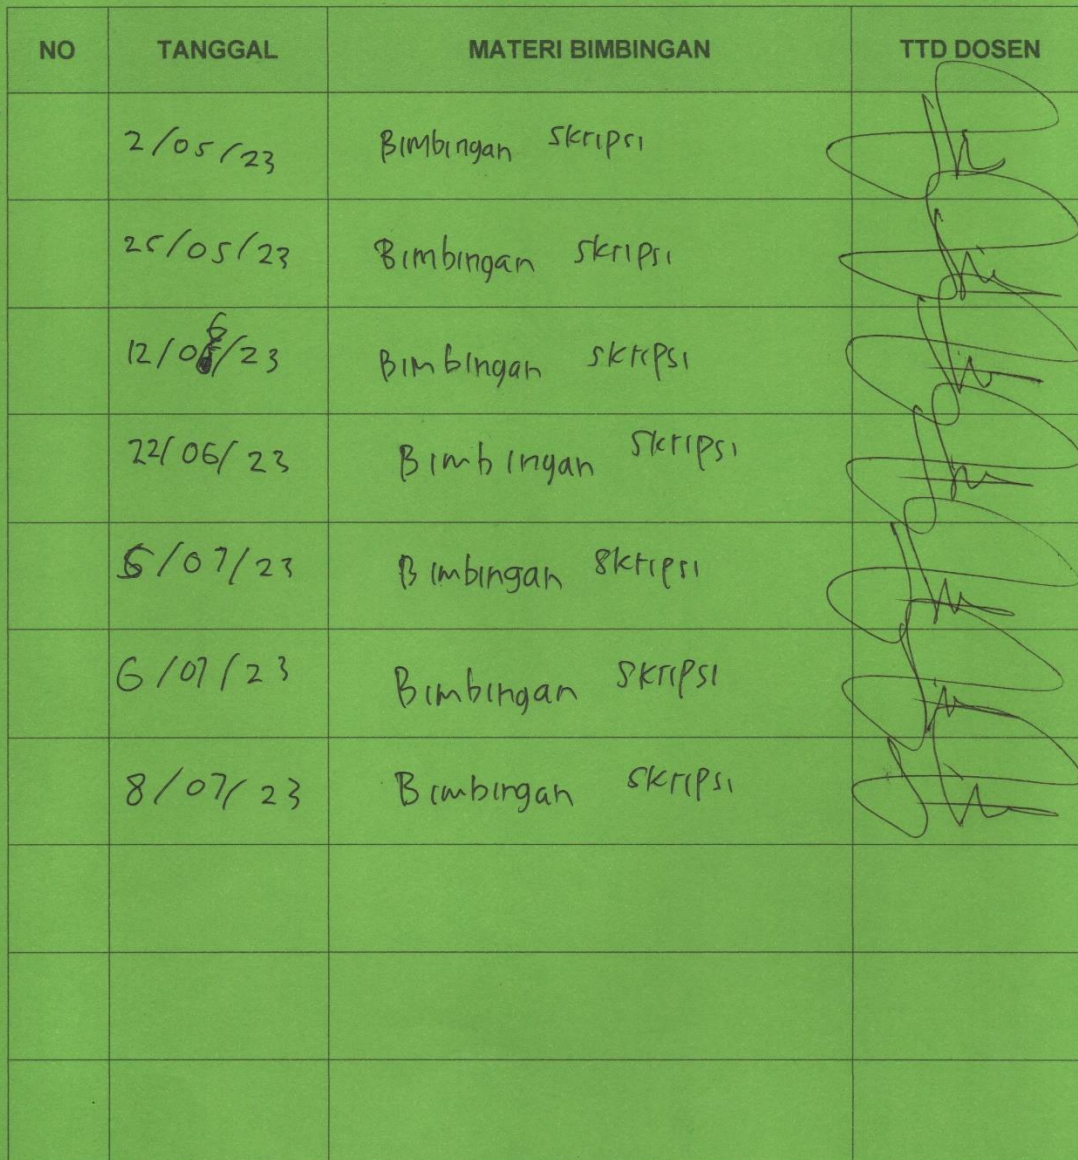 NO TANGGAL MATERI BIMBINGAN TTD DOSEN
2/05/23 Bimbingan Skripsi
25/05/23 Bimbingan Skripsi
12/06/23 Bimbingan Skripsi
22/06/23 Bimbingan Skripsi
5/07/23 Bimbingan Skripsi
6/07/23 Bimbingan Skripsi
8/07/23 Bimbingan Skripsi